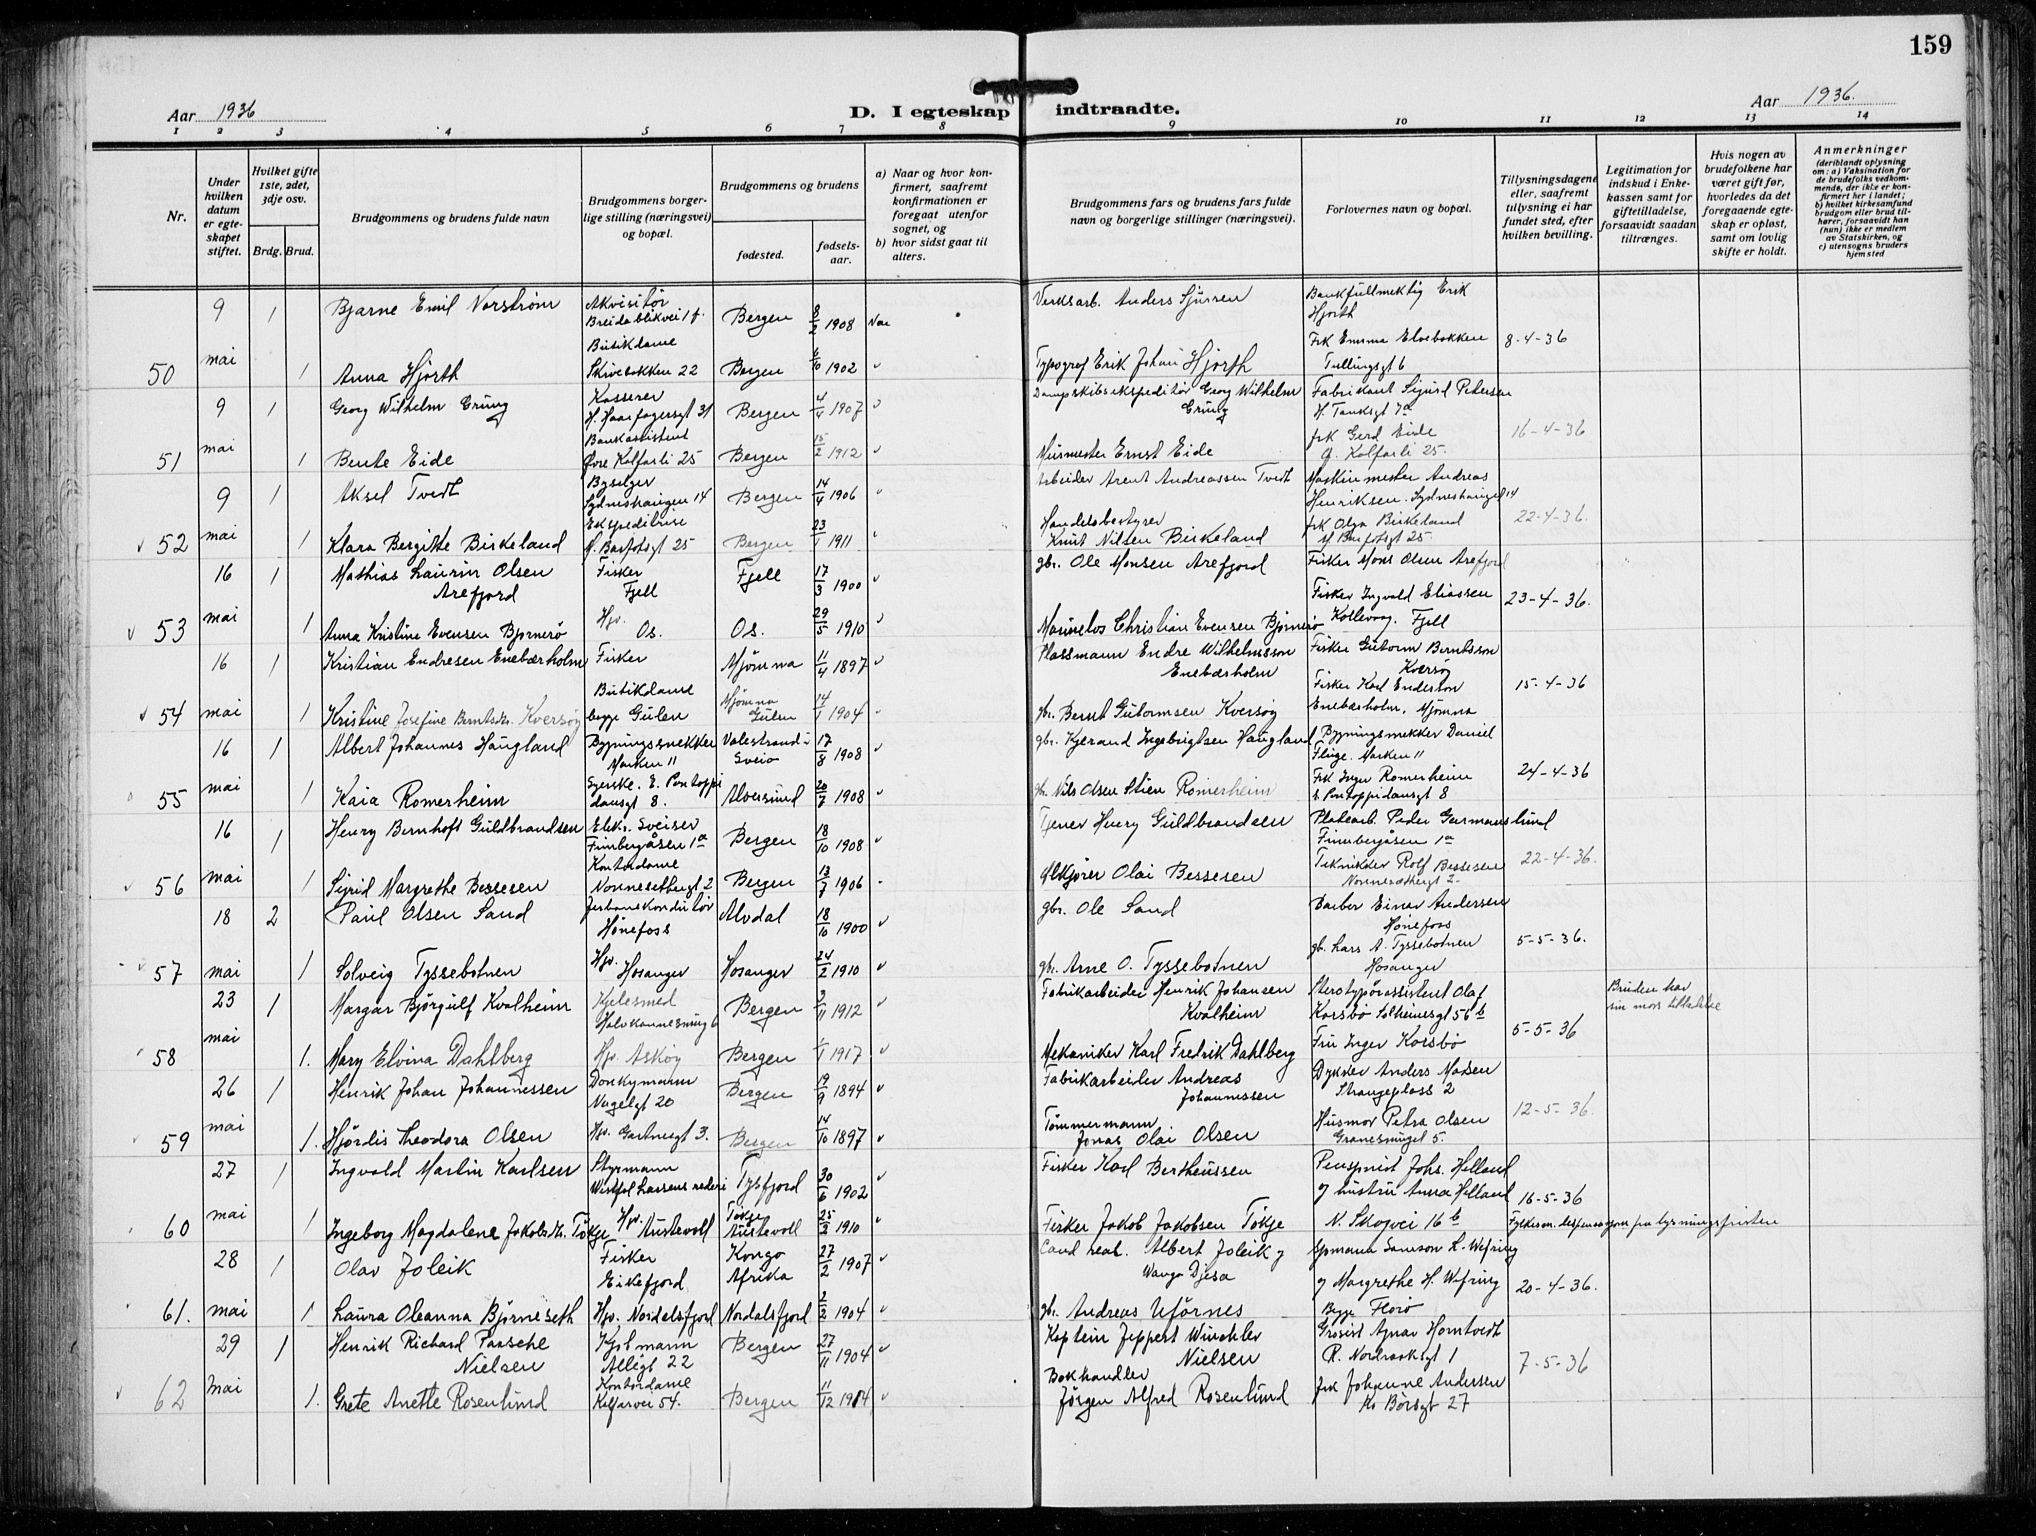 159
Aar 1936
D. I egteskap indtraadte.
Aar 1936.
1 2 3 4 5 6 7 8 9 10 11 12 13 14
Nr.
Under hvilken datum er egteskapet stiftet.
Hvilket gifte 1ste, 2det, 3dje osv.
Brdg. Brud.
Brudgommens og brudens fulde navn
Brudgommens borgerlige stilling (næringsvei) og bopæl.
Brudgommens og brudens
fødested.
fødselsaar.
a) Naar og hvor konfirmert, saafremt konfirmationen er foregaat utenfor sognet, og
b) hvor sidst gaat til alters.
Brudgommens fars og brudens fars fulde navn og borgerlige stillinger (næringsvei).
Forlovernes navn og bopæl.
Tillysningsdagene eller, saafremt tillysning ei har fundet sted, efter hvilken bevilling.
Legitimation for indskud i Enkekassen samt for giftetilladelse, forsaavidt saadan tiltrænges.
Hvis nogen av brudefolkene har været gift før, hvorledes da det foregaaende egteskap er opløst, samt om lovlig skifte er holdt.
Anmerkninger
(deriblandt oplysning om: a) Vaksination for de brudefolks vedkommende, der ikke er konfirmert her i landet; b) hvilket kirkesamfund brudgom eller brud tilhører, forsaavidt han (hun) ikke er medlem av Statskirken, og c) utensogns bruders hjemsted
9 1 Bjarne Emil Norstrøm Akvisitør Breidablikvei 1 f. Bergen 8/2 1908 Nei Verksarb. Anders Sjursen Bankfullmektig Erik Hjorth
50 mai 1 Anna Hjorth Butikdame Skivebakken 22 Bergen 6/10 1902 Typograf Erik Johan Hjorth Frk Emma Elvebakken Tullingsgt 6 8-4-36
9 1 Georg Wilhelm Grung Kasserer H. Haarfagersgt 31 Bergen 4/4 1907 Dampskibsekspeditør Georg Wilhelm Grung Fabrikant Sigurd Petersen H. Tanksgt 7a
51 mai 1 Bente Eide Bankassistent Øvre Kalfarli 25 Bergen 15/2 1912 Murmester Ernst Eide frk Gerd Eide Ø. Kalfarli 25. 16-4-36
9 1 Aksel Tvedt Byselger Sydneshaugen 14 Bergen 14/4 1906 Arbeider Arent Andreassen Tvedt Maskinmester Andreas Henriksen. Sydneshauget 14
52 mai 1 Klara Bergitte Birkeland Ekspeditrise Bergen 23/1 1911 Handelsbestyrer Knut Nilsen Birkeland frk Olga Birkeland 22-4-36.
16 1 Mathias Laurin Olsen Arefjord Fisker Fjell Fjell 17/3 1900 gbr. Ole Monsen Arefjord Fisker Mons Olsen Arefjord
53 mai 1 Anna Kristine Evensen Bjørnerø Hjv. Os. Os. 29/5 1910 Christian Evensen Bjørnerø Fisker Ingvald Eliassen Kollevaag. Fjell 23-4-36.
16 1 Kristian Endresen Enebærholm Fisker Mjømna 11/4 1897 Plassmann Endre Wilhelmsson Enebærholm Fisker Gutorm Berntsson Kversøy
54 mai 1 Kristine Josefine Berntsdtr. Kversøy Butikdame begge Gulen Mjømna Gulen 14/1 1904 gbr. Bernt Gutormsen Kversøy Fisker Karl Enderson Enebærholm. Mjømna 15-4-36
16 1 Albert Johannes Haugland Bygningssnekker Marken 11 Valestrand i Sveio 17/8 1908 gbr. Kjerand Ingebrigtsen Haugland Bygningsnekker Daniel Fluge. Marken 11
55 mai 1 Kaia Romerheim Syerske. E. Pontoppidansgt 8. Alversund 20/7 1908 gbr. Nils Olsen Stien Romerheim Frk Inger Romerheim E. Pontoppidansgt 8 24-4-36
16 1 Henry Bernhoft Guldbrandsen Elek. Sveiser Finnbergåsen 1a Bergen 18/10 1908 Tjener Henry Guldbrandsen Platearb. Peder Garmannslund Finnbergåsen 1a
56 mai 1 Sigrid Margrethe Bessesen Kontordame Nonnesetergt 2 Bergen 13/7 1906 Ølkjører Olai Bessesen Tekniker Rolf Bessesen Nonnesætergt 2 22-4-36.
18 2 Paul Olsen Sand Jerbanekonduktør Hønefoss Alvdal 18/10 1900 gbr. Ole Sand Barber Einar Andersen Hønefoss
57 mai 1 Solveig Tyssebotnen Hjv. Hosanger Hosanger 24/2 1910 gbr. Arne O. Tyssebotnen gb. Lars A. Tyssebotnen Hosanger 5-5-36.
23 1 Margar Bjørgulf Kvalheim Kjelesmed Bergen 3/11 1912 Fabrikarbeider Henrik Johansen Kvalheim Sterotypørassistent Olaf Korsbø Solheimsgt 56b Bruden har sin mors tilladelse
58 mai 1. Mary Elvina Dahlberg Hjv. Askøy Bergen 1/1 1917 Mekaniker Karl Fredrik Dahlberg Fru Inger Korsbø 5-5-36
26 1 Henrik Johan Johannessen Donkymann Nagelgt 20 Bergen 19/9 1894 Fabrikarbeider Andreas Johannessen Dykker Anders Madsen Strangeplass 2
59 mai 1. Hjørdis Theodora Olsen Hjv. Gartnergt 3. Bergen 14/10 1897 Tømmermann Jonas Olai Olsen Husmor Petra Olsen Granesmuget 5. 12-5-36.
27 1 Ingvald Martin Karlsen Styrmann Westfal Larsens rederi Tysfjord 30/6 1902 Fisker Karl Bertheussen Pensjonist Johs. Helland og hustru Anna Helland
60 mai 1 Ingeborg Magdalene Jakobsdtr. Tökje Hjv. Austevoll Tökje Austevoll 25/3 1910 Fisker Jakob Jakobsen Tökje N. Skogvei 16b 16-5-36 Fylkesm. dispensasjon fra lysningsfristen
28 1 Olav Joleik Fisker Eikefjord Kongo Afrika 27/2 1907 Cand real. Albert Joleik og Wanga Djesa Samson L. Wefring
61. mai 1 Laura Oleanna Bjørneseth Hjv. Nordalsfjord Nordalsfjord 2/2 1904 gbr. Andreas Ufornes og Margrethe H. Wefring Begge Florø 20-4-36.
29 1 Henrik Richard Paasche Nielsen Kjøbmann Allégt 22 Bergen 27/11 1904 Kaptein Jeppert Winchler Nielsen Grosist Agnar Homtvedt R. Nordraaksgt 1
62 mai 1. Grete Anette Rosenlund Kontordame Kalfarvei 54. Bergen 11/12 1914 Bokhandler Jørgen Alfred Rosenlund frk Johanne Andersen Ks Børsgt 27 7-5-36